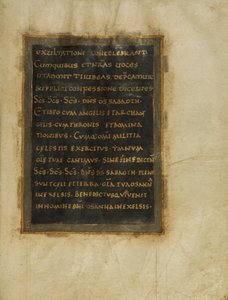 EXULTATIONE CONCELEBRANT
CUMQUIBUS ETNRAS UOCES
UTADMITTIIUBEAS DEPCAMUR
SUPPLICI CONFESSIONE DICENTES
SCS SCS SCS DNS DS SABAOTH
ETIDEO CUM ANGELIS ETARCHAN
GELIS CUMTHRONIS ETDOMINA
TIONIBUS CUMQ OMNI MILITIA
CELESTIS EXERCITUS YMNUM
GLE TUAE CANIMUS SINE FINE DICEN
SCS SCS SCS DNS DS SABAOTH PLENI
SUNT CELI ETTERRA GLA TUA OSANN
INEXCELSIS BENEDICTUS QUIUENIT
INNOMINE DNI OSANNA INEXCELSIS